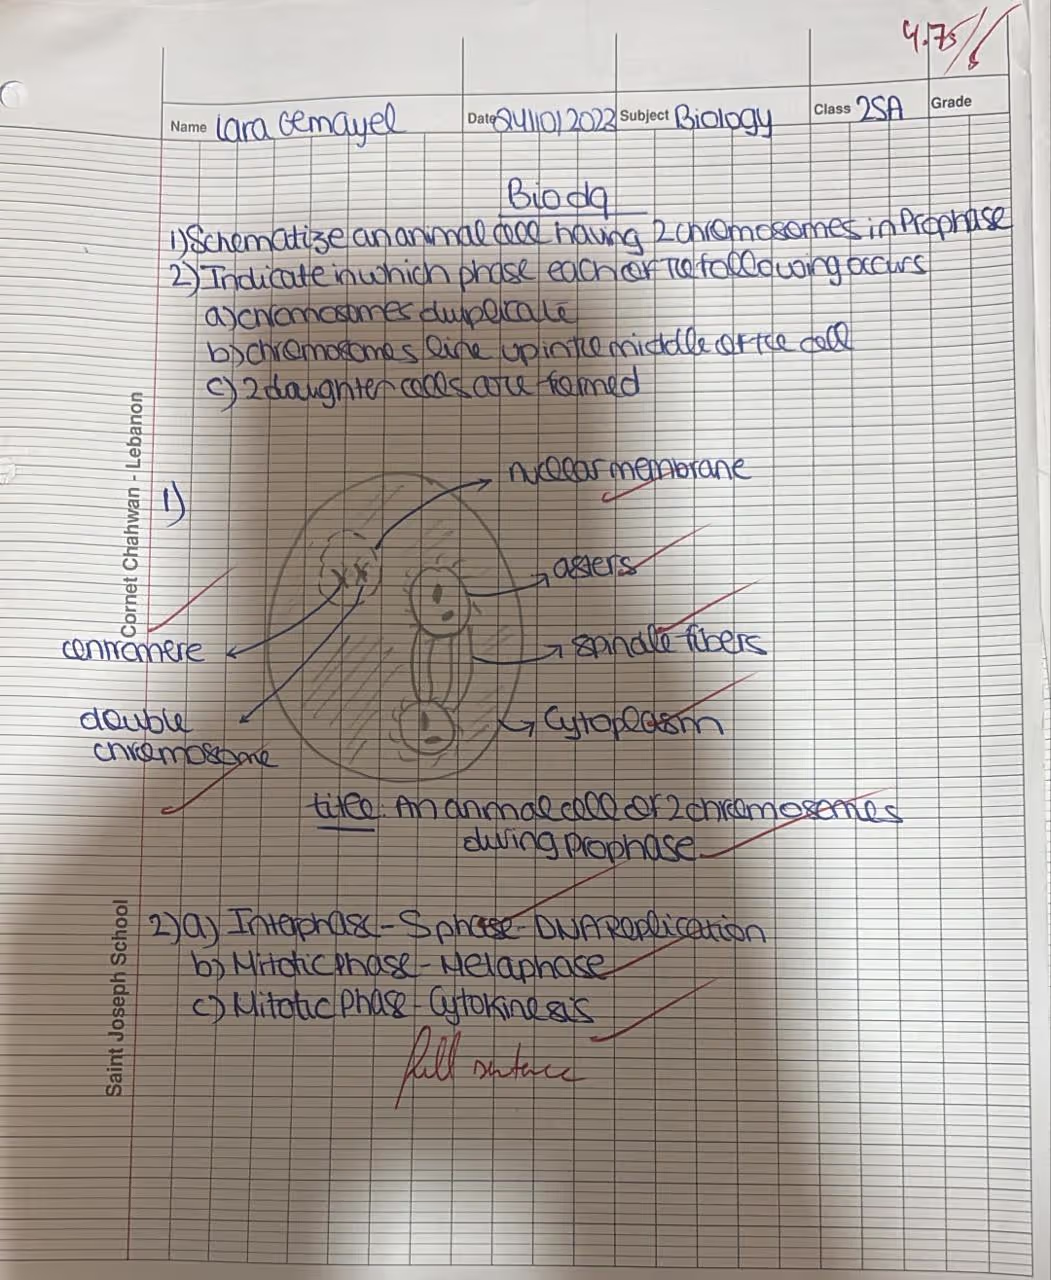 4.75/5
Name Lara Gemayel Date 24/10/2023 Subject Biology Class 2SA Grade
Bio dq
1) Schematize an animal cell having 2 chromosomes in Prophase
2) Indicate in which phase each of the following occurs
a) chromosomes duplicate
b) chromosomes line up in the middle of the cell
c) 2 daughter cells are formed
Cornet Chahwan - Lebanon
1)
nuclear membrane
asters
centromere
spindle fibers
double
chromosome
cytoplasm
title: An animal cell of 2 chromosomes
during prophase
Saint Joseph School
2) a) Interphase - S phase - DNA Replication
b) Mitotic phase - Metaphase
c) Mitotic phase - Cytokinesis
full sentence